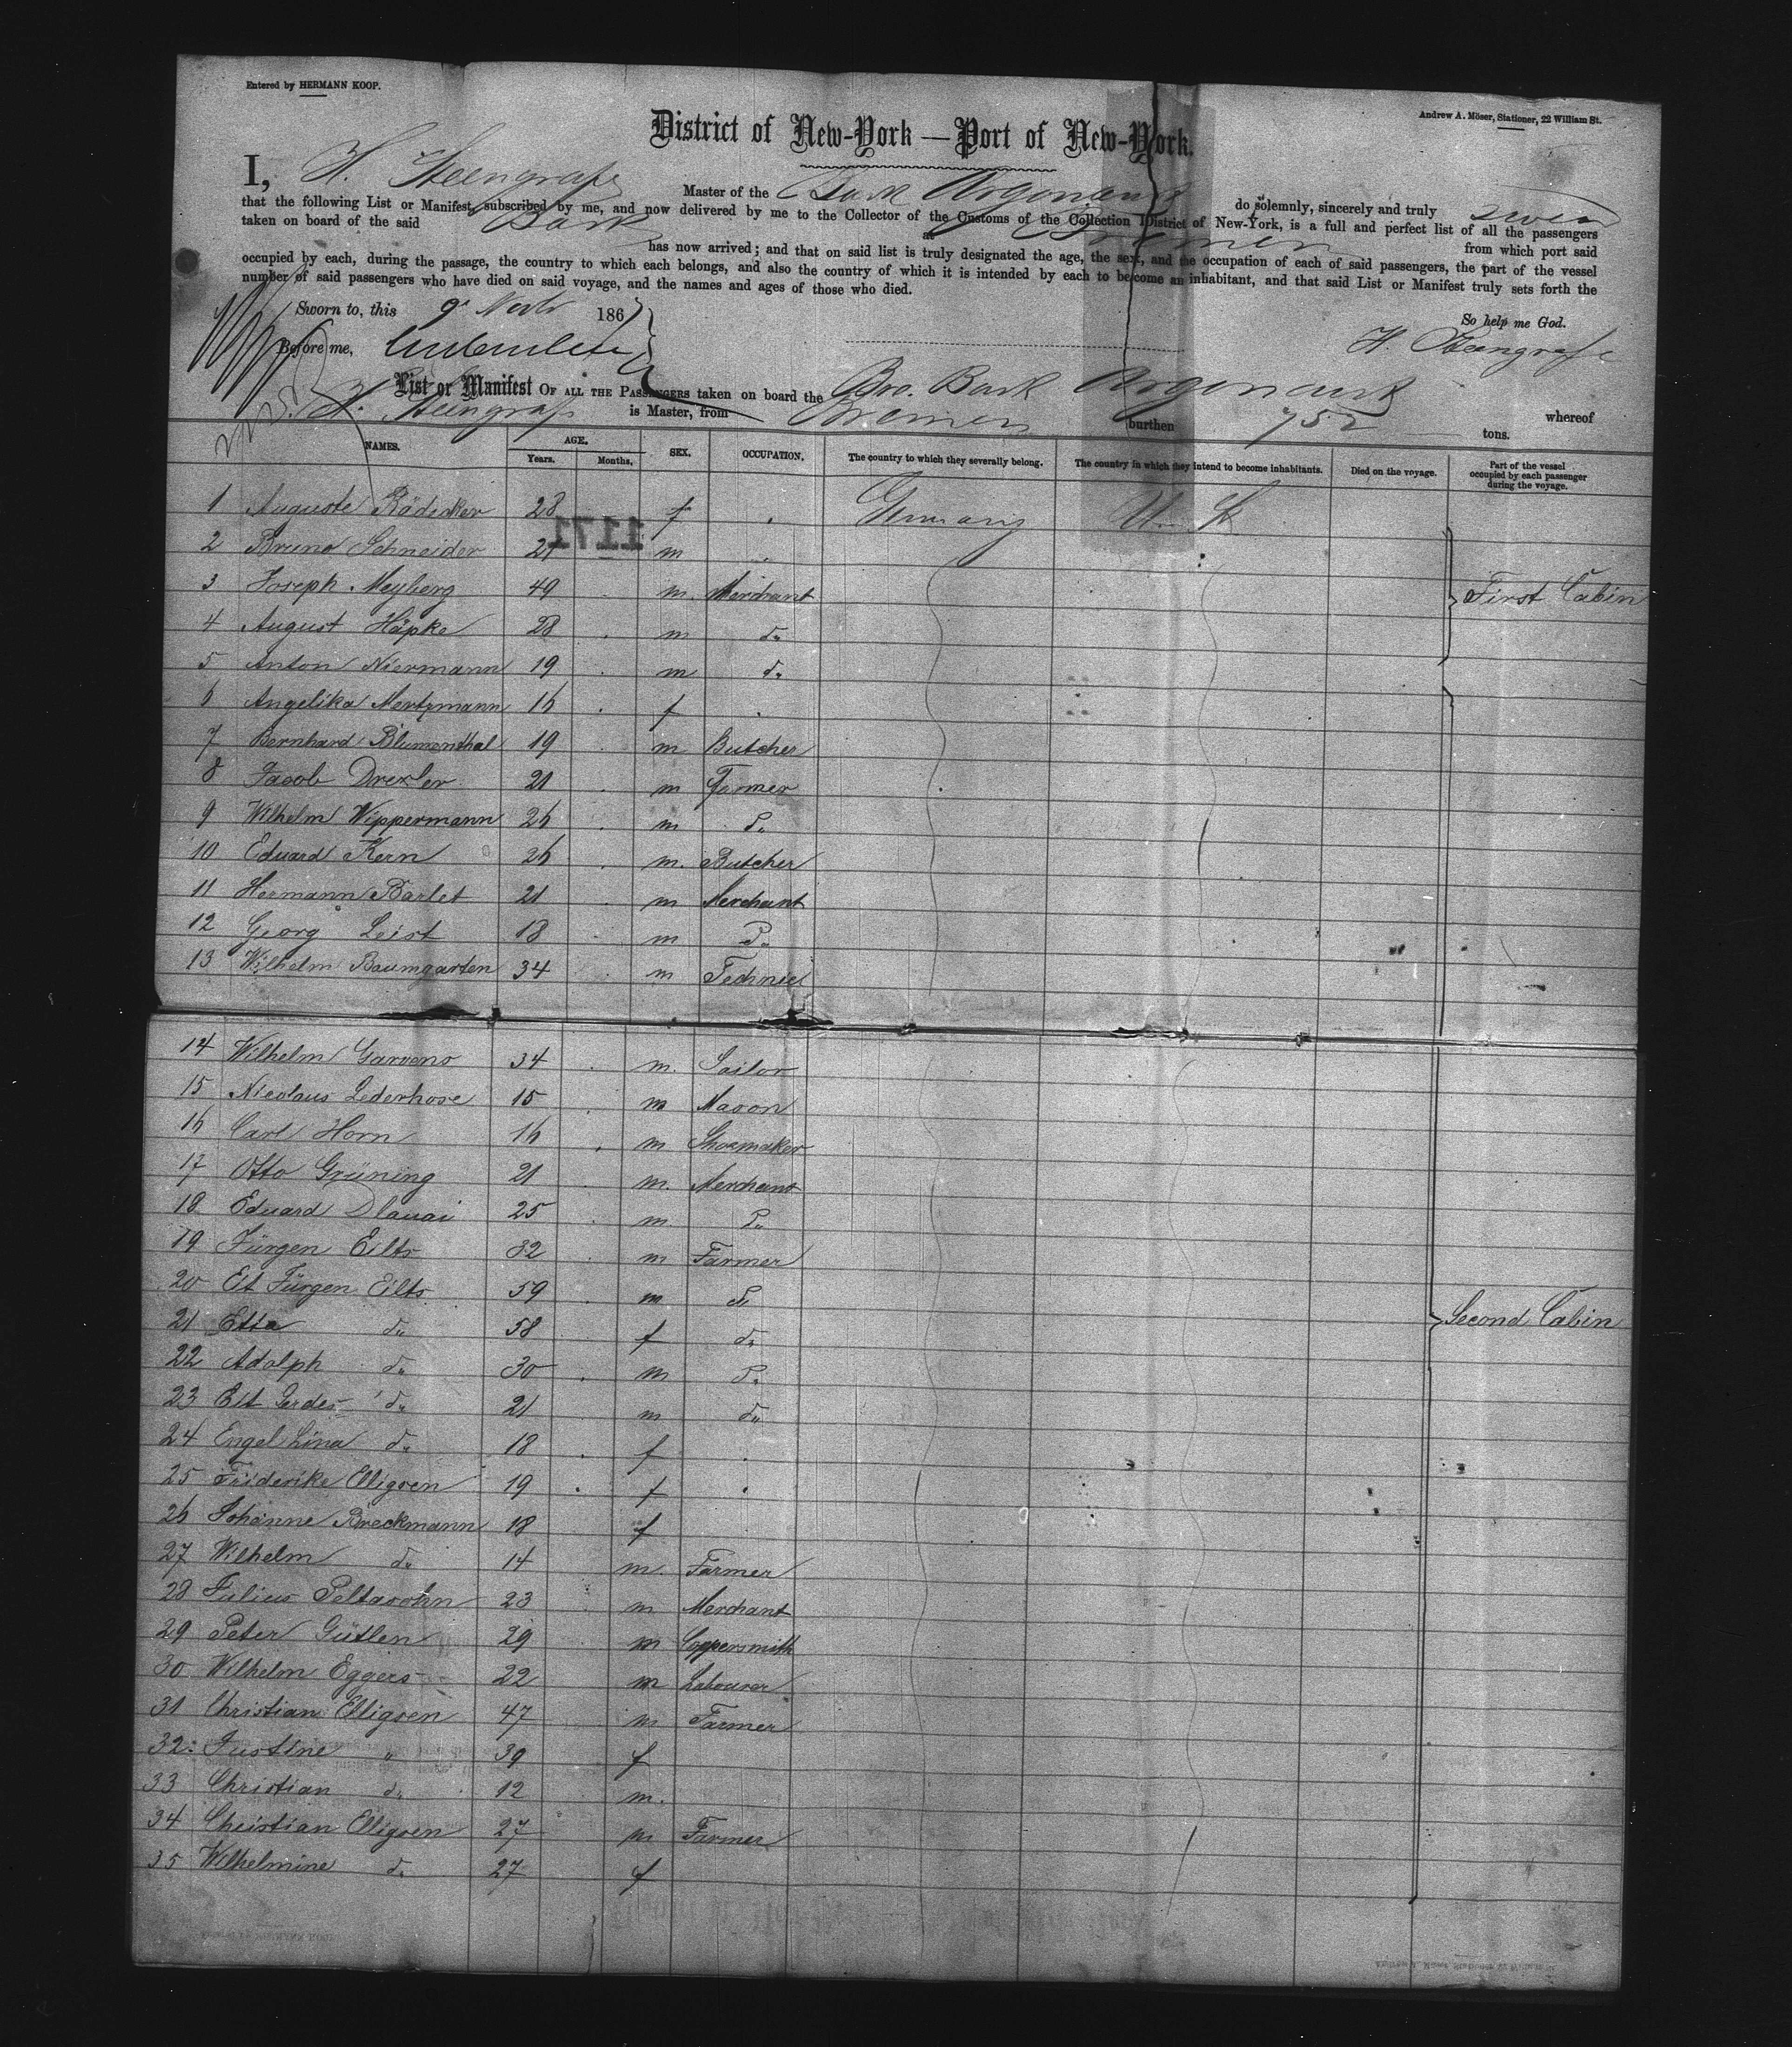 Entered by HERMANN KOOP.
Andrew A. Möser, Stationer, 22 William St.
District of New-York — Port of New-York.
I, H. Steengrafe Master of the Bark Argonaut do solemnly, sincerely and truly swear
that the following List or Manifest, subscribed by me, and now delivered by me to the Collector of the Customs of the Collection District of New-York, is a full and perfect list of all the passengers
taken on board of the said Bark at Bremen from which port said
has now arrived; and that on said list is truly designated the age, the sex, and the occupation of each of said passengers, the part of the vessel
occupied by each, during the passage, the country to which each belongs, and also the country of which it is intended by each to become an inhabitant, and that said List or Manifest truly sets forth the
number of said passengers who have died on said voyage, and the names and ages of those who died.
Sworn to, this 9 Novbr 1867
So help me God.
Before me,
H. Steengrafe
List or Manifest OF ALL THE PASSENGERS taken on board the Bre. Bark Argonaut whereof
H. Steengrafe is Master, from Bremen burthen 752 tons.
NAMES. AGE. Years. Months. SEX. OCCUPATION. The country to which they severally belong. The country in which they intend to become inhabitants. Died on the voyage. Part of the vessel occupied by each passenger during the voyage.
1171
1 Auguste Rädeker 28 f Germany U. St
2 Bruno Schneider 21 m
3 Joseph Meyberg 49 m Merchant First Cabin
4 August Häpke 28 m do
5 Anton Niermann 19 m do
6 Angelika Mertzmann 16 f
7 Bernhard Blumenthal 19 m Butcher
8 Jacob Drexler 21 m Farmer
9 Wilhelm Wippermann 26 m do
10 Eduard Kern 26 m. Butcher
11 Hermann Barlet 21 m Merchant
12 Georg Leist 18 m Do
13 Wilhelm Baumgarten 34 m Technici
14 Wilhelm Garvens 34 m. Sailor
15 Nicolaus Lederhose 15 m Mason
16 Carl Horn 16 m Shoemaker
17 Otto Grüning 21 m. Merchant
18 Eduard Dlauai 25 m. Do
19 Jürgen Eilts 32 m Farmer
20 Et Jürgen Eilts 59 m do
21 Etta do 58 f do Second Cabin
22 Adolph do 30 m Do
23 Eit Gerdes do 21 m do
24 Engel Lina do 18 f
25 Friderike Elligsen 19 f
26 Johanne Brockmann 18 f
27 Wilhelm do 14 m. Farmer
28 Julius Peltasohn 23 m Merchant
29 Peter Gütlen 29 m Coppersmith
30 Wilhelm Eggers 22 m Labourer
31 Christian Elligsen 47 m Farmer
32 Justine " 39 f
33 Christian do 12 m.
34 Christian Elligsen 27 m Farmer
35 Wilhelmine do 27 f